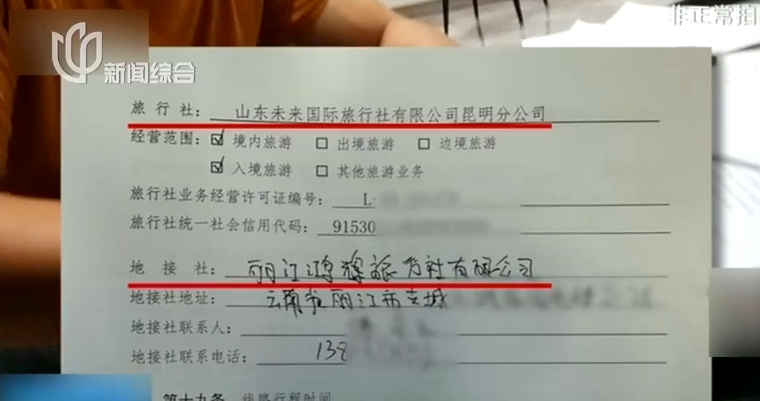 非正常拍
新闻综合
旅行社：山东未来国际旅行社有限公司昆明分公司
经营范围：☑境内旅游 □出境旅游 □边境旅游
☑入境旅游 □其他旅游业务
旅行社业务经营许可证编号：L
旅行社统一社会信用代码：91530
地接社：丽江鸿辉旅行社有限公司
地接社地址：云南省丽江市古城
地接社联系人：
地接社联系电话：138
第十九条 线路行程时间